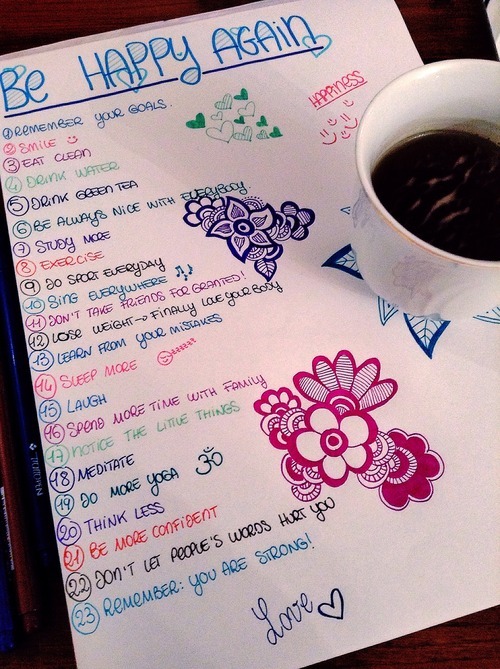 BE HAPPY AGAIN
HAPPINESS
1 REMEMBER YOUR GOALS.
2 SMILE
3 EAT CLEAN
4 DRINK WATER
5 DRINK GREEN TEA
6 BE ALWAYS NICE WITH EVERYBODY.
7 STUDY MORE
8 EXERCISE
9 DO SPORT EVERYDAY
10 SING EVERYWHERE
11 DON'T TAKE FRIENDS FOR GRANTED!
12 LOSE WEIGHT → FINALLY LOVE YOUR BODY
13 LEARN FROM YOUR MISTAKES
14 SLEEP MORE zzzzzzz
15 LAUGH
16 SPEND MORE TIME WITH FAMILY
17 NOTICE THE LITTLE THINGS
18 MEDITATE
19 DO MORE YOGA ॐ
20 THINK LESS
21 BE MORE CONFIDENT
22 DON'T LET PEOPLE'S WORDS HURT YOU
23 REMEMBER: YOU ARE STRONG!
Love ♡